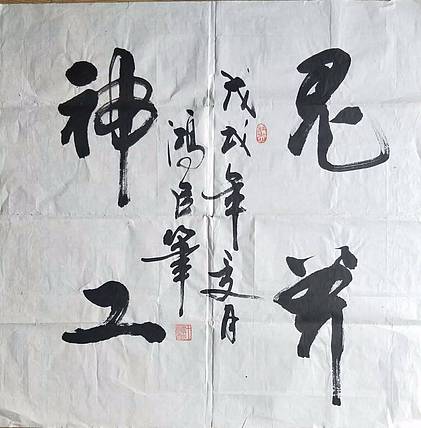 鬼斧
神工
戊戌年夏月
鸿臣筆